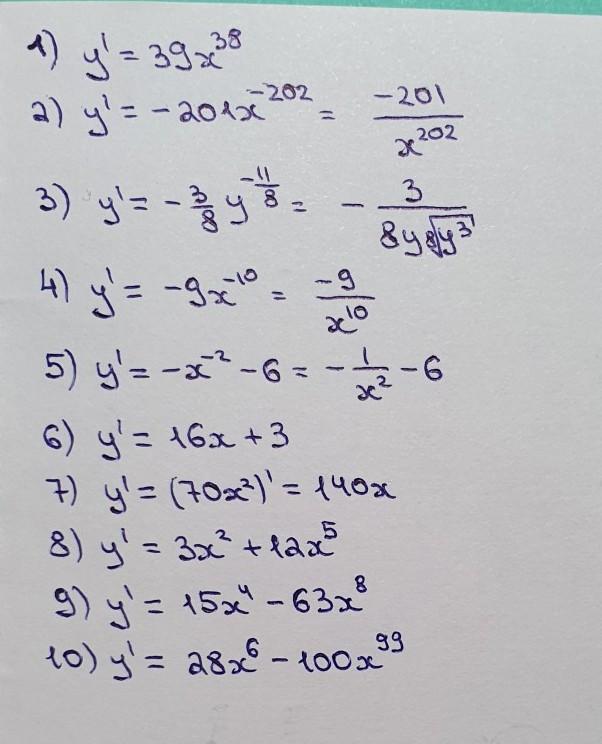 1) y' = 39x³⁸
2) y' = -201x⁻²⁰² = -201/x²⁰²
3) y' = -3/8 y^(-11/8) = - 3/(8y ⁸√y³)
4) y' = -9x⁻¹⁰ = -9/x¹⁰
5) y' = -x⁻² - 6 = - 1/x² - 6
6) y' = 16x + 3
7) y' = (70x²)' = 140x
8) y' = 3x² + 12x⁵
9) y' = 15x⁴ - 63x⁸
10) y' = 28x⁶ - 100x⁹⁹